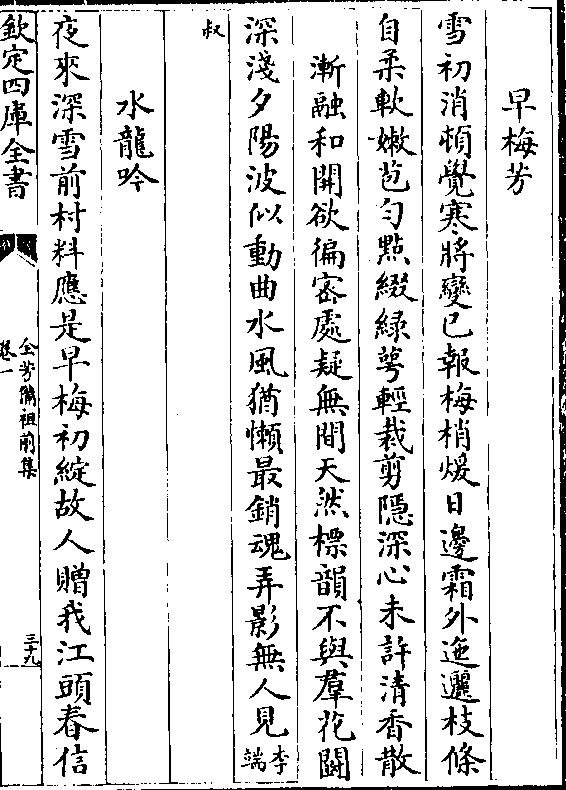 早梅芳
雪初消頓覺寒將變已報梅梢煖日邊霜外迤邐枝條
自柔軟嫩苞勻點綴綠萼輕裁剪隱深心未許清香散
漸融和開欲徧密處疑無間天然標韻不與羣花鬬
深淺夕陽波似動曲水風猶懶最銷魂弄影無人見李端
叔
水龍吟
夜來深雪前村料應是早梅初綻故人贈我江頭春信
欽定四庫全書
全芳備祖前集
卷一
三十九